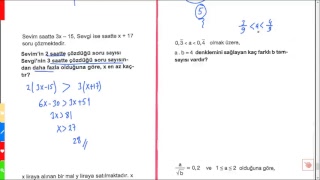 Sevim saatte 3x – 15, Sevgi ise saatte x + 17
soru çözmektedir.
Sevim'in 2 saatte çözdüğü soru sayısı
Sevgi'nin 3 saatte çözdüğü soru sayısın-
dan daha fazla olduğuna göre, x en az kaç-
tır?
2(3x-15) > 3(x+17)
6x-30 > 3x+51
3x > 81
x > 27
28 //
x liraya alınan bir mal y liraya satılmaktadır. x
5
?
3/9 < a < 4/9
0,3̄ < a < 0,4̄ olmak üzere,
a . b = 4 denklemini sağlayan kaç farklı b tam-
sayısı vardır?
a/√b = 0,2 ve 1 ≤ a ≤ 2 olduğuna göre,